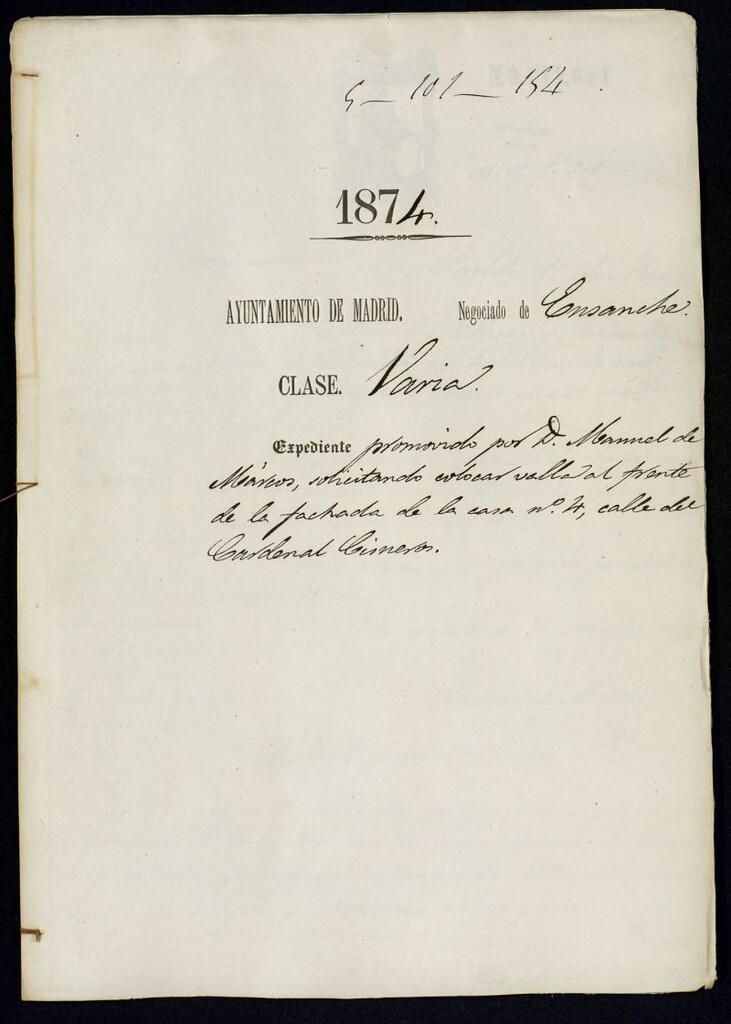 5 - 101 - 154
1874.
AYUNTAMIENTO DE MADRID. Negociado de Ensanche.
CLASE. Varia.
Expediente promovido por D. Manuel de
Márcos, solicitando colocar valla al frente
de la fachada de la casa nº. 4, calle del
Cardenal Cisneros.